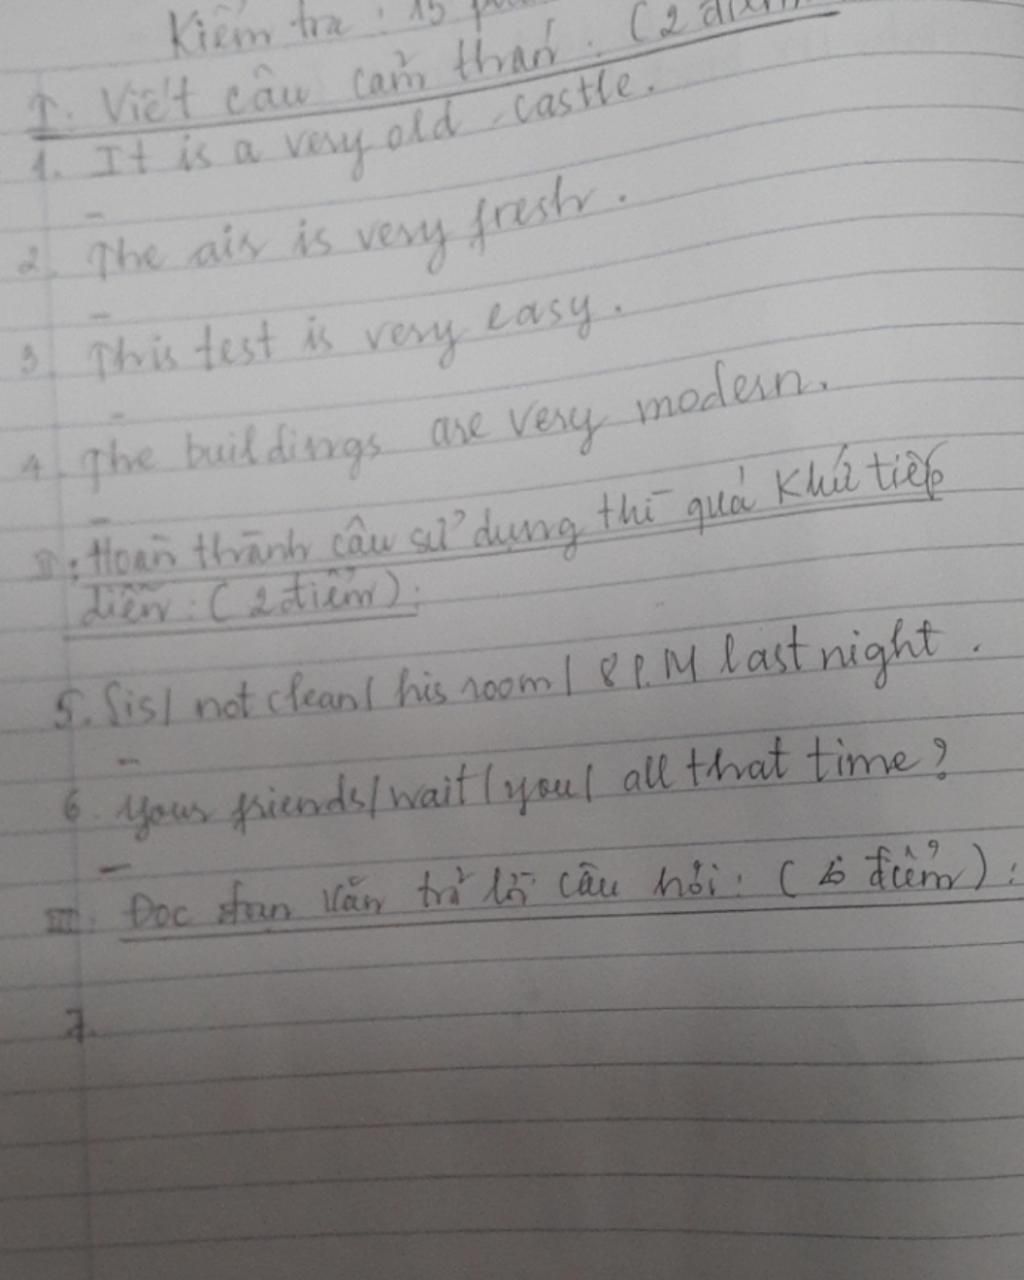 Kiểm tra : 15
I. Viết câu cảm thán. (2 điểm
1. It is a very old castle.
-
2. The air is very fresh.
-
3 This test is very easy.
-
4. The buildings are very modern.
-
II: Hoàn thành câu sử dụng thì quá khứ tiếp
diễn: (2 điểm):
5. Sis/ not clean/ his room/ 8 P.M last night.
-
6. Your friends/wait/you/ all that time?
-
III. Đọc đoạn văn trả lời câu hỏi: ( 6 điểm):
7.